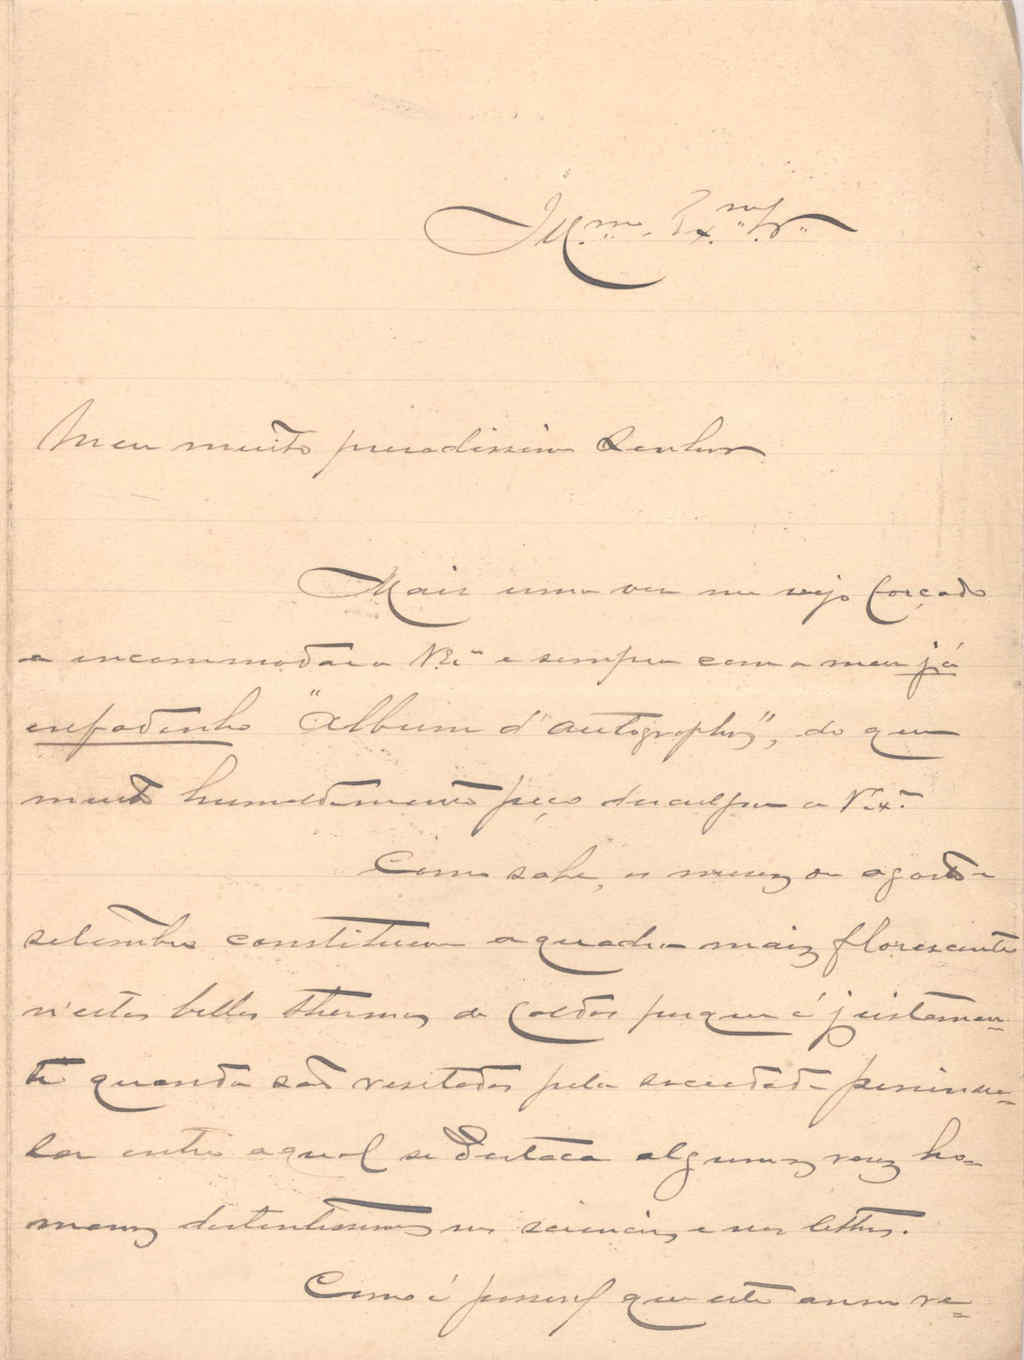 Ill.mo Ex.mo Snr.
Meu muito presadissimo Senhor
Mais uma vez me vejo forçado
a encommodar a V.Ex.ª e sempre com o meu já
enfadonho "Album d'autographos", do que
muito humildemente peço desculpa a V.Ex.ª
Como sabe, os mezes de agosto e
setembro constituem a quadra mais florescente
n'estas bellas thermas de Caldas porque é justamen-
te quando são visitadas pela sociedade peninsu-
lar entre a qual se destaca algumas vezes ho-
mens distinctissimos nas sciencias e nas lettras.
Como é possivel que este anno ve-